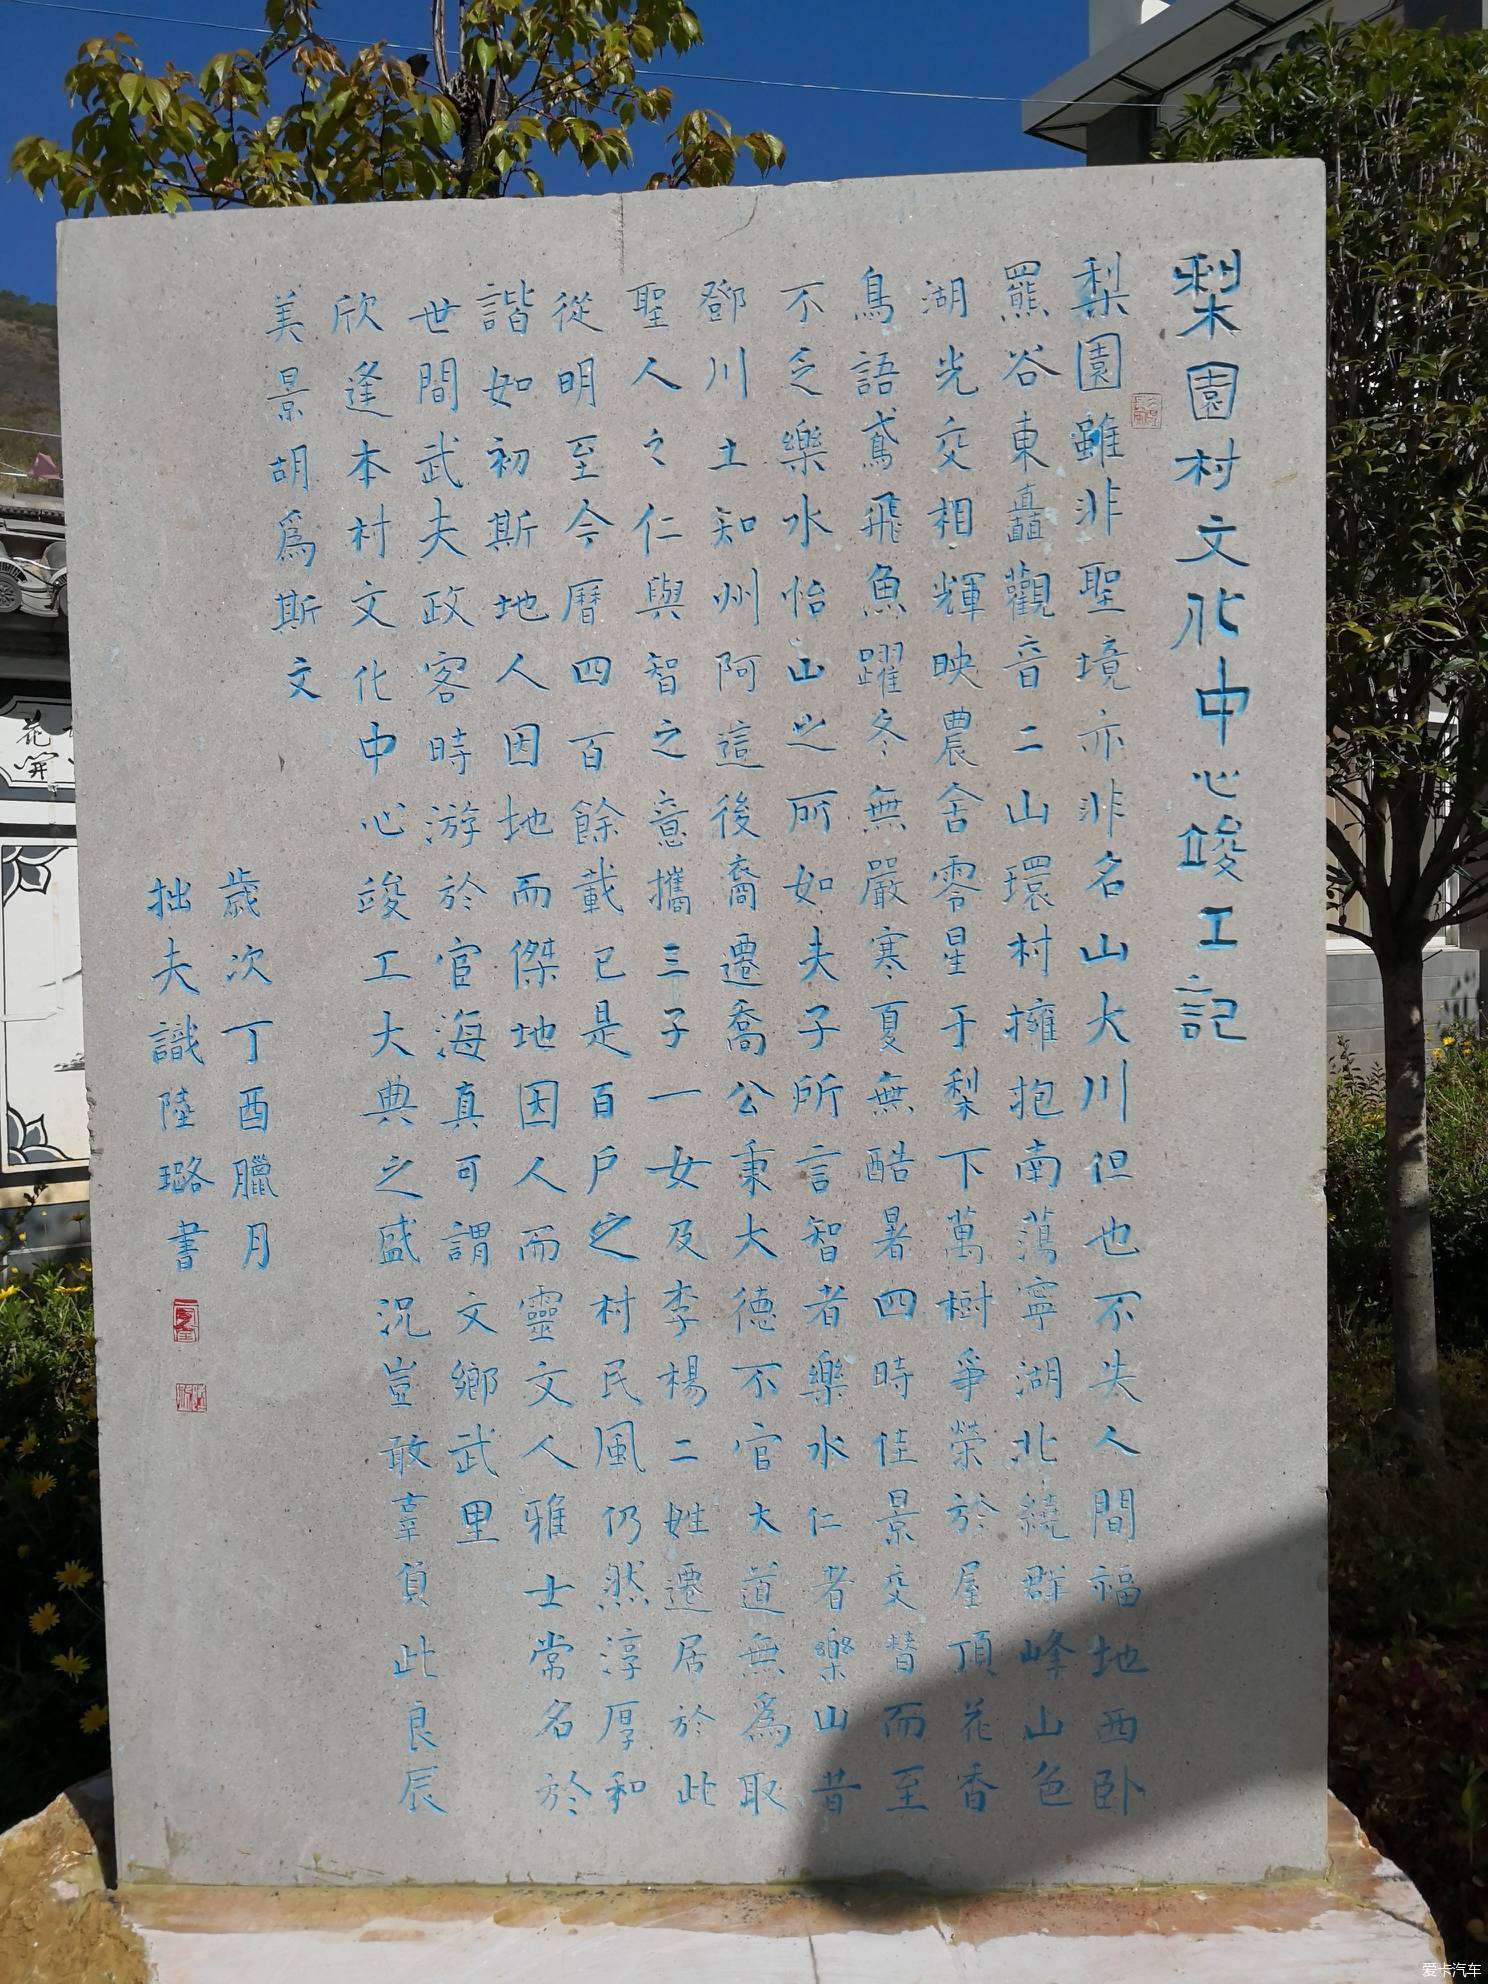 梨園村文化中心竣工之記
梨園雖非聖境亦非名山大川但也不失人間福地西卧
羆谷東矗觀音二山環村擁抱南蕩寧湖北繞群峰山色
湖光交相輝映農舍零星于梨下萬樹爭榮於屋頂花香
鳥語鳶飛魚躍冬無嚴寒夏無酷暑四時佳景交替而至
不乏樂水怡山之所如夫子所言智者樂水仁者樂山昔
鄧川土知州阿這後裔遷喬公秉大德不官大道無為取
聖人之仁與智之意攜三子一女及李楊二姓遷居於此
從明至今曆四百餘載已是百戶之村民風仍然淳厚和
諧如初斯地人因地而傑地因人而靈文人雅士常名於
世間武夫政客時游於宦海真可謂文鄉武里
欣逢本村文化中心竣工大典之盛況豈敢辜負此良辰
美景胡為斯文
歲次丁酉臘月
拙夫識陸璐書
花開
爱卡汽车